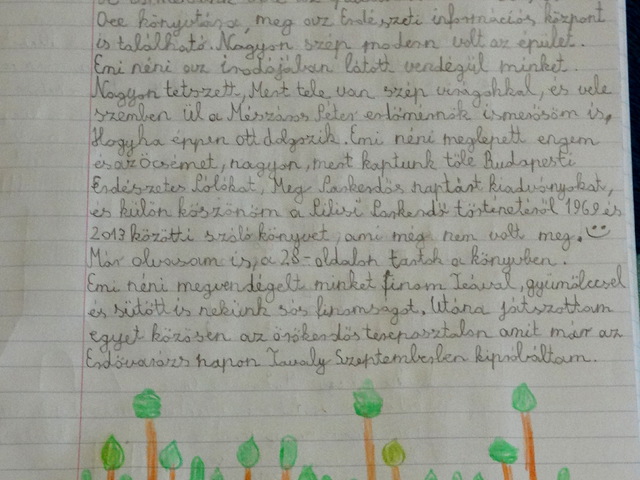 Oce könyvtára, meg az Erdészeti információs központ
is található. Nagyon szép modern volt az épület.
Emi néni az irodájában látott vendégül minket.
Nagyon tetszett, Mert tele van szép virágokkal, és vele
szemben ül a Mészáros Péter erdőmérnök ismerősöm is,
Hogyha éppen ott dolgozik. Emi néni meglepett engem
és az Öcsémet, nagyon, mert kaptunk tőle Budapesti
Erdészetes Pólókat, Meg Parkerdős naptárt kiadványokat,
és külön köszönöm a Pilisi Parkerdő történetéről 1969 és
2013 közötti szóló könyvet, ami még nem volt meg.
Már olvasom is, a 28-oldalon tartok a könyvben.
Emi néni megvendégelt minket finom Teával, gyümölccsel
és sütött is nekünk sós finomságot. Utána játszottam
egyet közösen az örökerdős terepasztalon amit már az
Erdővarázs napon Tavaly Szeptemberben kipróbáltam.